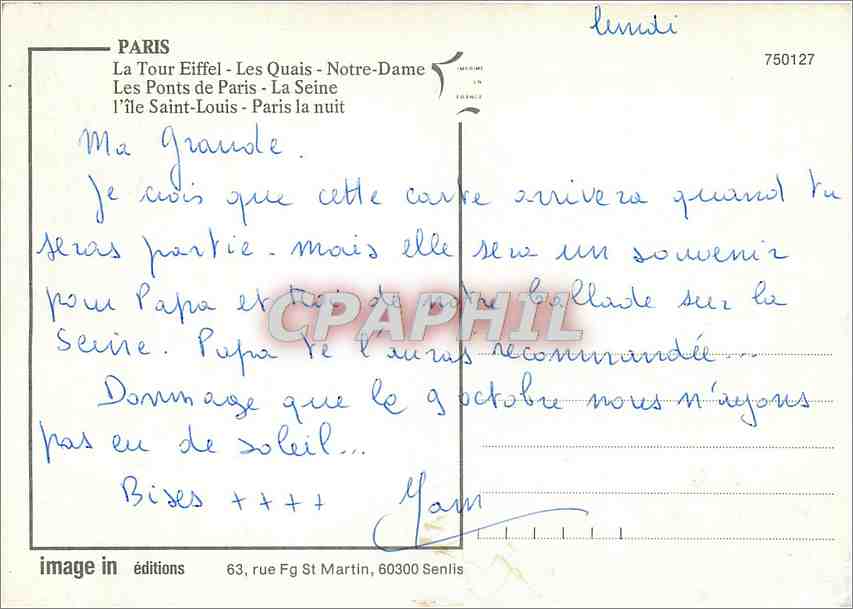 lundi
PARIS
La Tour Eiffel - Les Quais - Notre-Dame
Les Ponts de Paris - La Seine
l'île Saint-Louis - Paris la nuit
IMPRIMÉ
EN
FRANCE
750127
Ma Grande.
Je crois que cette carte arrivera quand tu
seras partie. mais elle sera un souvenir
pour Papa et moi de notre ballade sur la
Seine. Papa te l'auras recommandée...
Dommage que le 9 octobre nous n'ayons
pas eu de soleil...
Bises ++++
CPAPHIL
image in éditions
63, rue Fg St Martin, 60300 Senlis